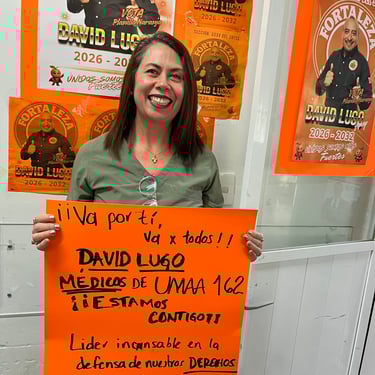 VOTA
Planilla Naranja
DAVID LUGO
2026 - 2032
UNIDOS SOMOS
Fuertes
2026 - 2032
FORTALEZA
DAVID LUGO
2026 - 2032
FORTALEZA
DAVID LUGO
2026-2032
FORTALEZA
DAVID LUGO
2026 - 2032
Fuertes
¡¡Va por ti,
va x todos!!
DAVID LUGO
MÉDICOS DE UMAA 162
¡¡ESTAMOS
CONTIGO!!
Lider incansable en la
defensa de nuestros DERECHOS